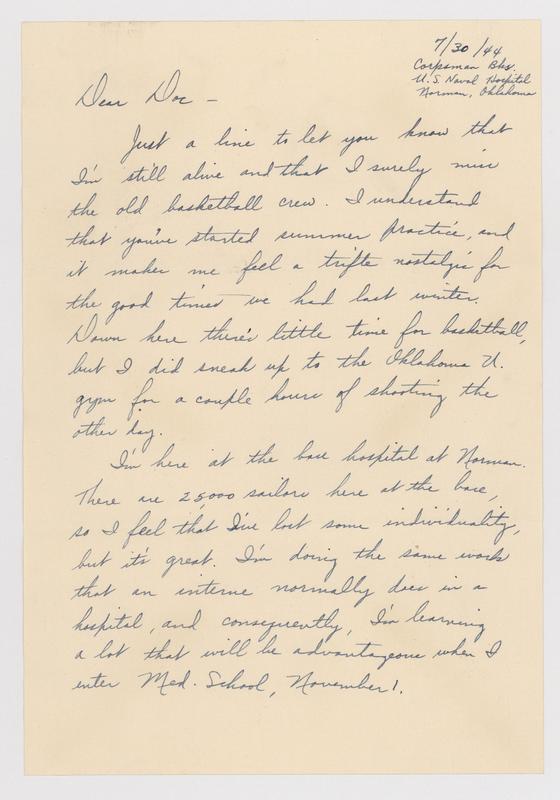 7/30/44
Corpsman Bks.
U.S. Naval Hospital
Norman, Oklahoma
Dear Doc –
Just a line to let you know that
I'm still alive and that I surely miss
the old basketball crew. I understand
that you've started summer practice, and
it makes me feel a trifle nostalgic for
the good times we had last winter.
Down here there's little time for basketball,
but I did sneak up to the Oklahoma U.
gym for a couple hours of shooting the
other day.
I'm here at the base hospital at Norman.
There are 25,000 sailors here at the base,
so I feel that I've lost some individuality,
but it's great. I'm doing the same work
that an interne normally does in a
hospital, and consequently, I'm learning
a lot that will be advantageous when I
enter Med. School, November 1.